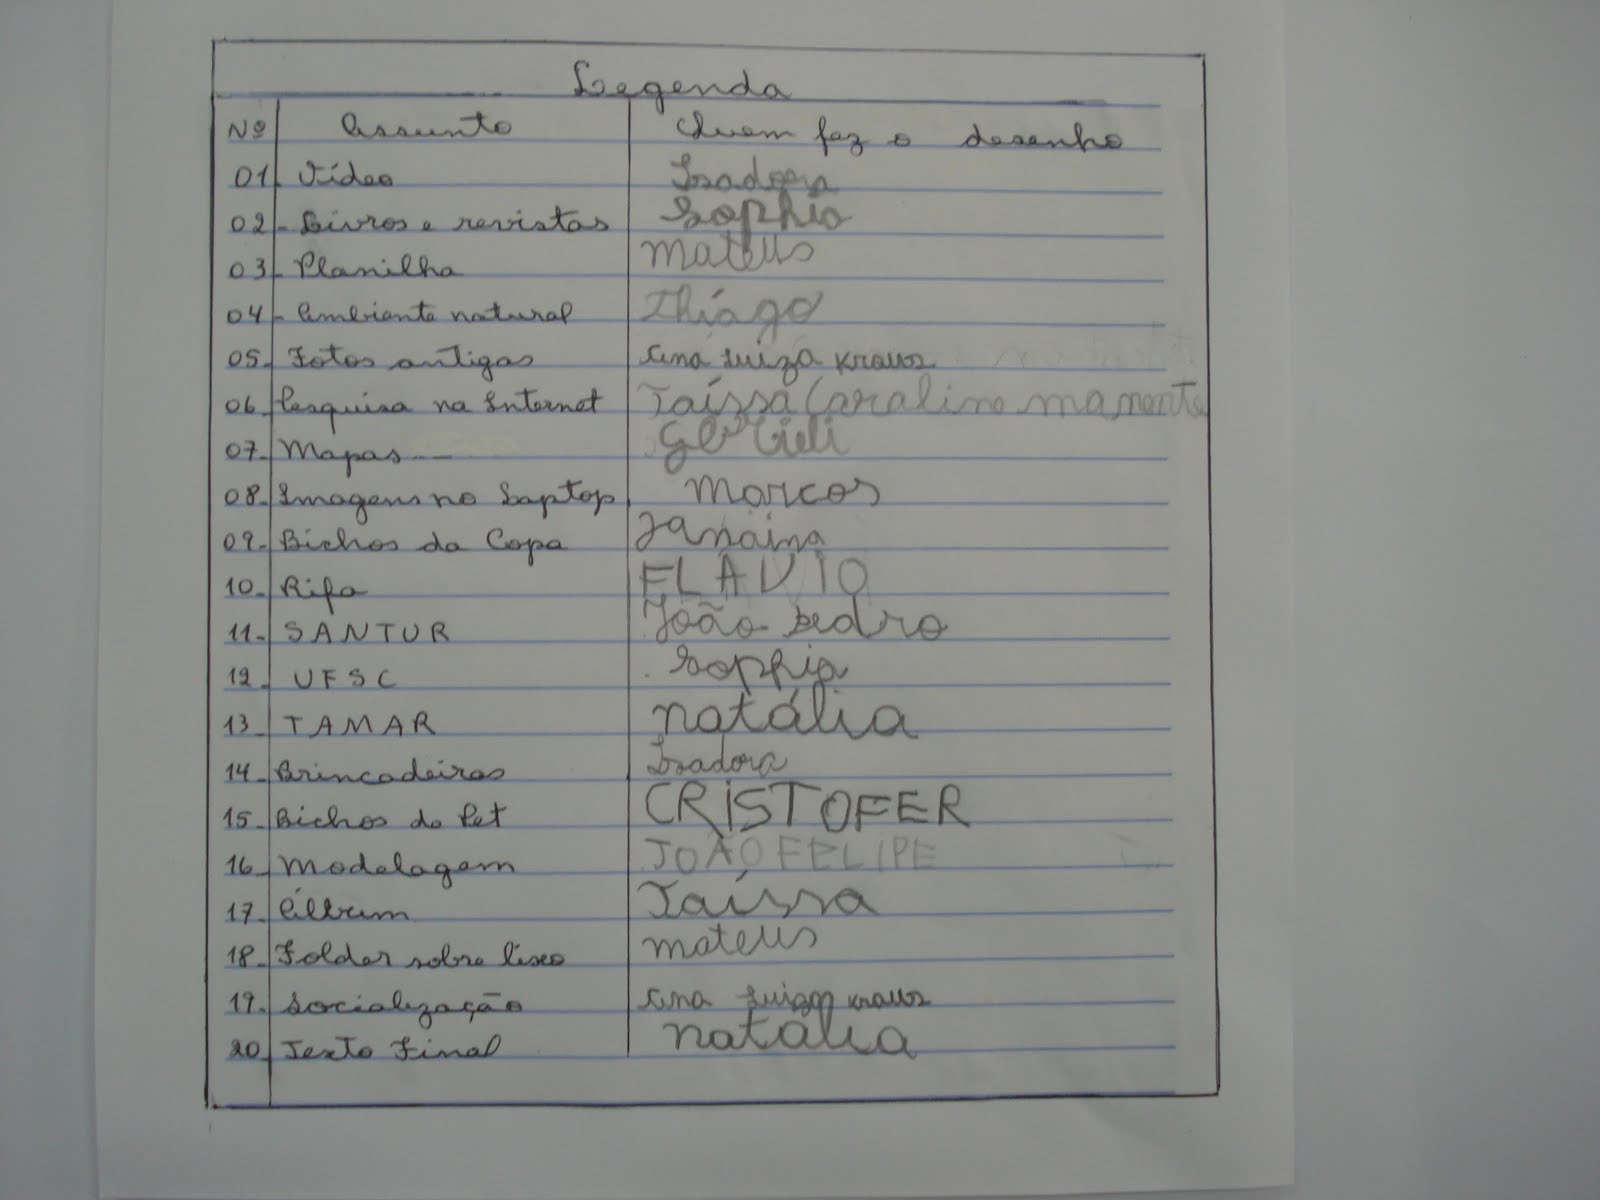 Legenda
Nº Assunto Quem fez o desenho
01. Vídeo Isadora
02 - Livros e revistas Sophia
03 - Planilha Mateus
04 - Ambiente natural Thiago
05. Fotos antigas Ana Luiza Kraus
06. Pesquisa na Internet Taíssa Caroline mamente
07. Mapas
08. Imagens no Laptop. Marcos
09. Bichos da Copa Janaina
10. Rifa FLÁVIO
11. SANTUR João pedro
12. UFSC Sophia
13. TAMAR natália
14. Brincadeiras Isadora
15. Bichos de Pet CRISTOFER
16. Modelagem JOÃO FELIPE
17. Álbum Taíssa
18. Folder sobre lixo mateus
19. Socialização Ana Luiza Kraus
20. Texto Final natália